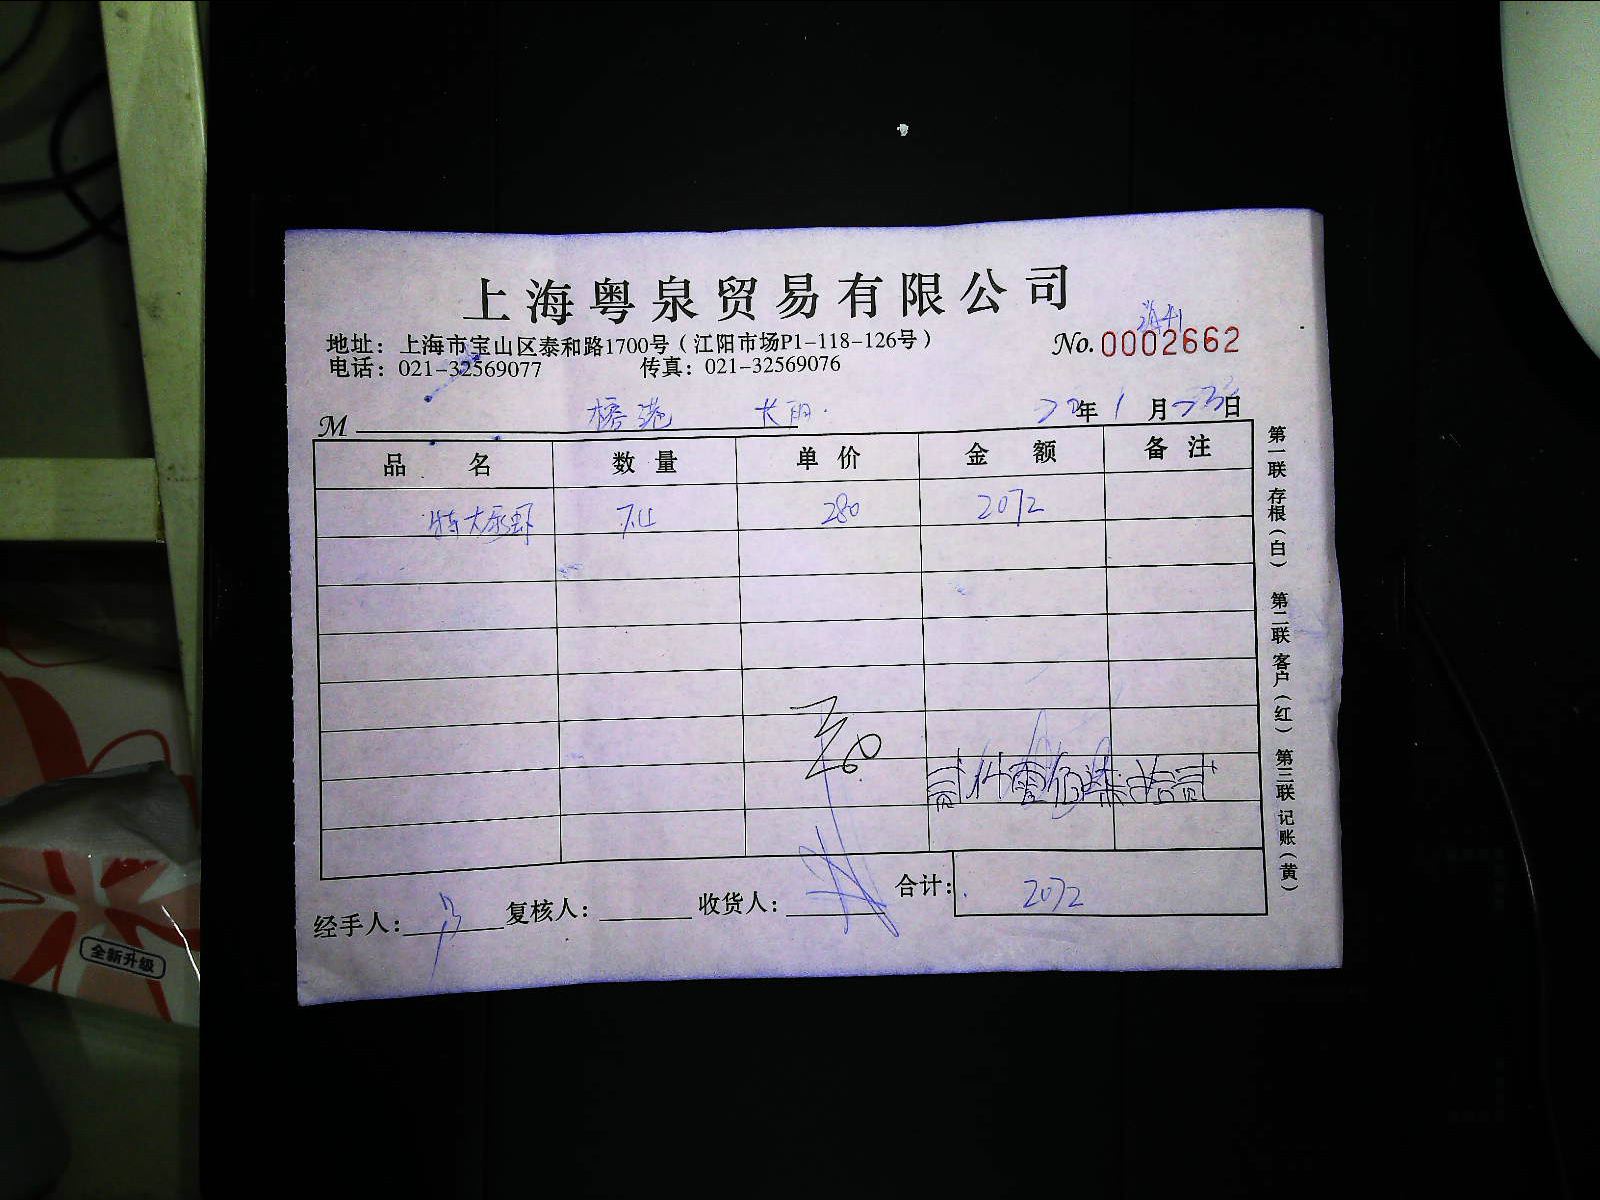 上海粤泉贸易有限公司
地址：上海市宝山区泰和路1700号（江阳市场P1-118-126号）
No. 0002662
电话：021-32569077 传真：021-32569076
M 榕港 年 1 月 23 日
品 名 数 量 单 价 金 额 备 注
特大 虾 7.4 280 2072
贰仟零佰柒拾贰
合计： 2072
经手人： 复核人： 收货人：
第一联 存根（白） 第二联 客户（红） 第三联 记账（黄）
全新升級